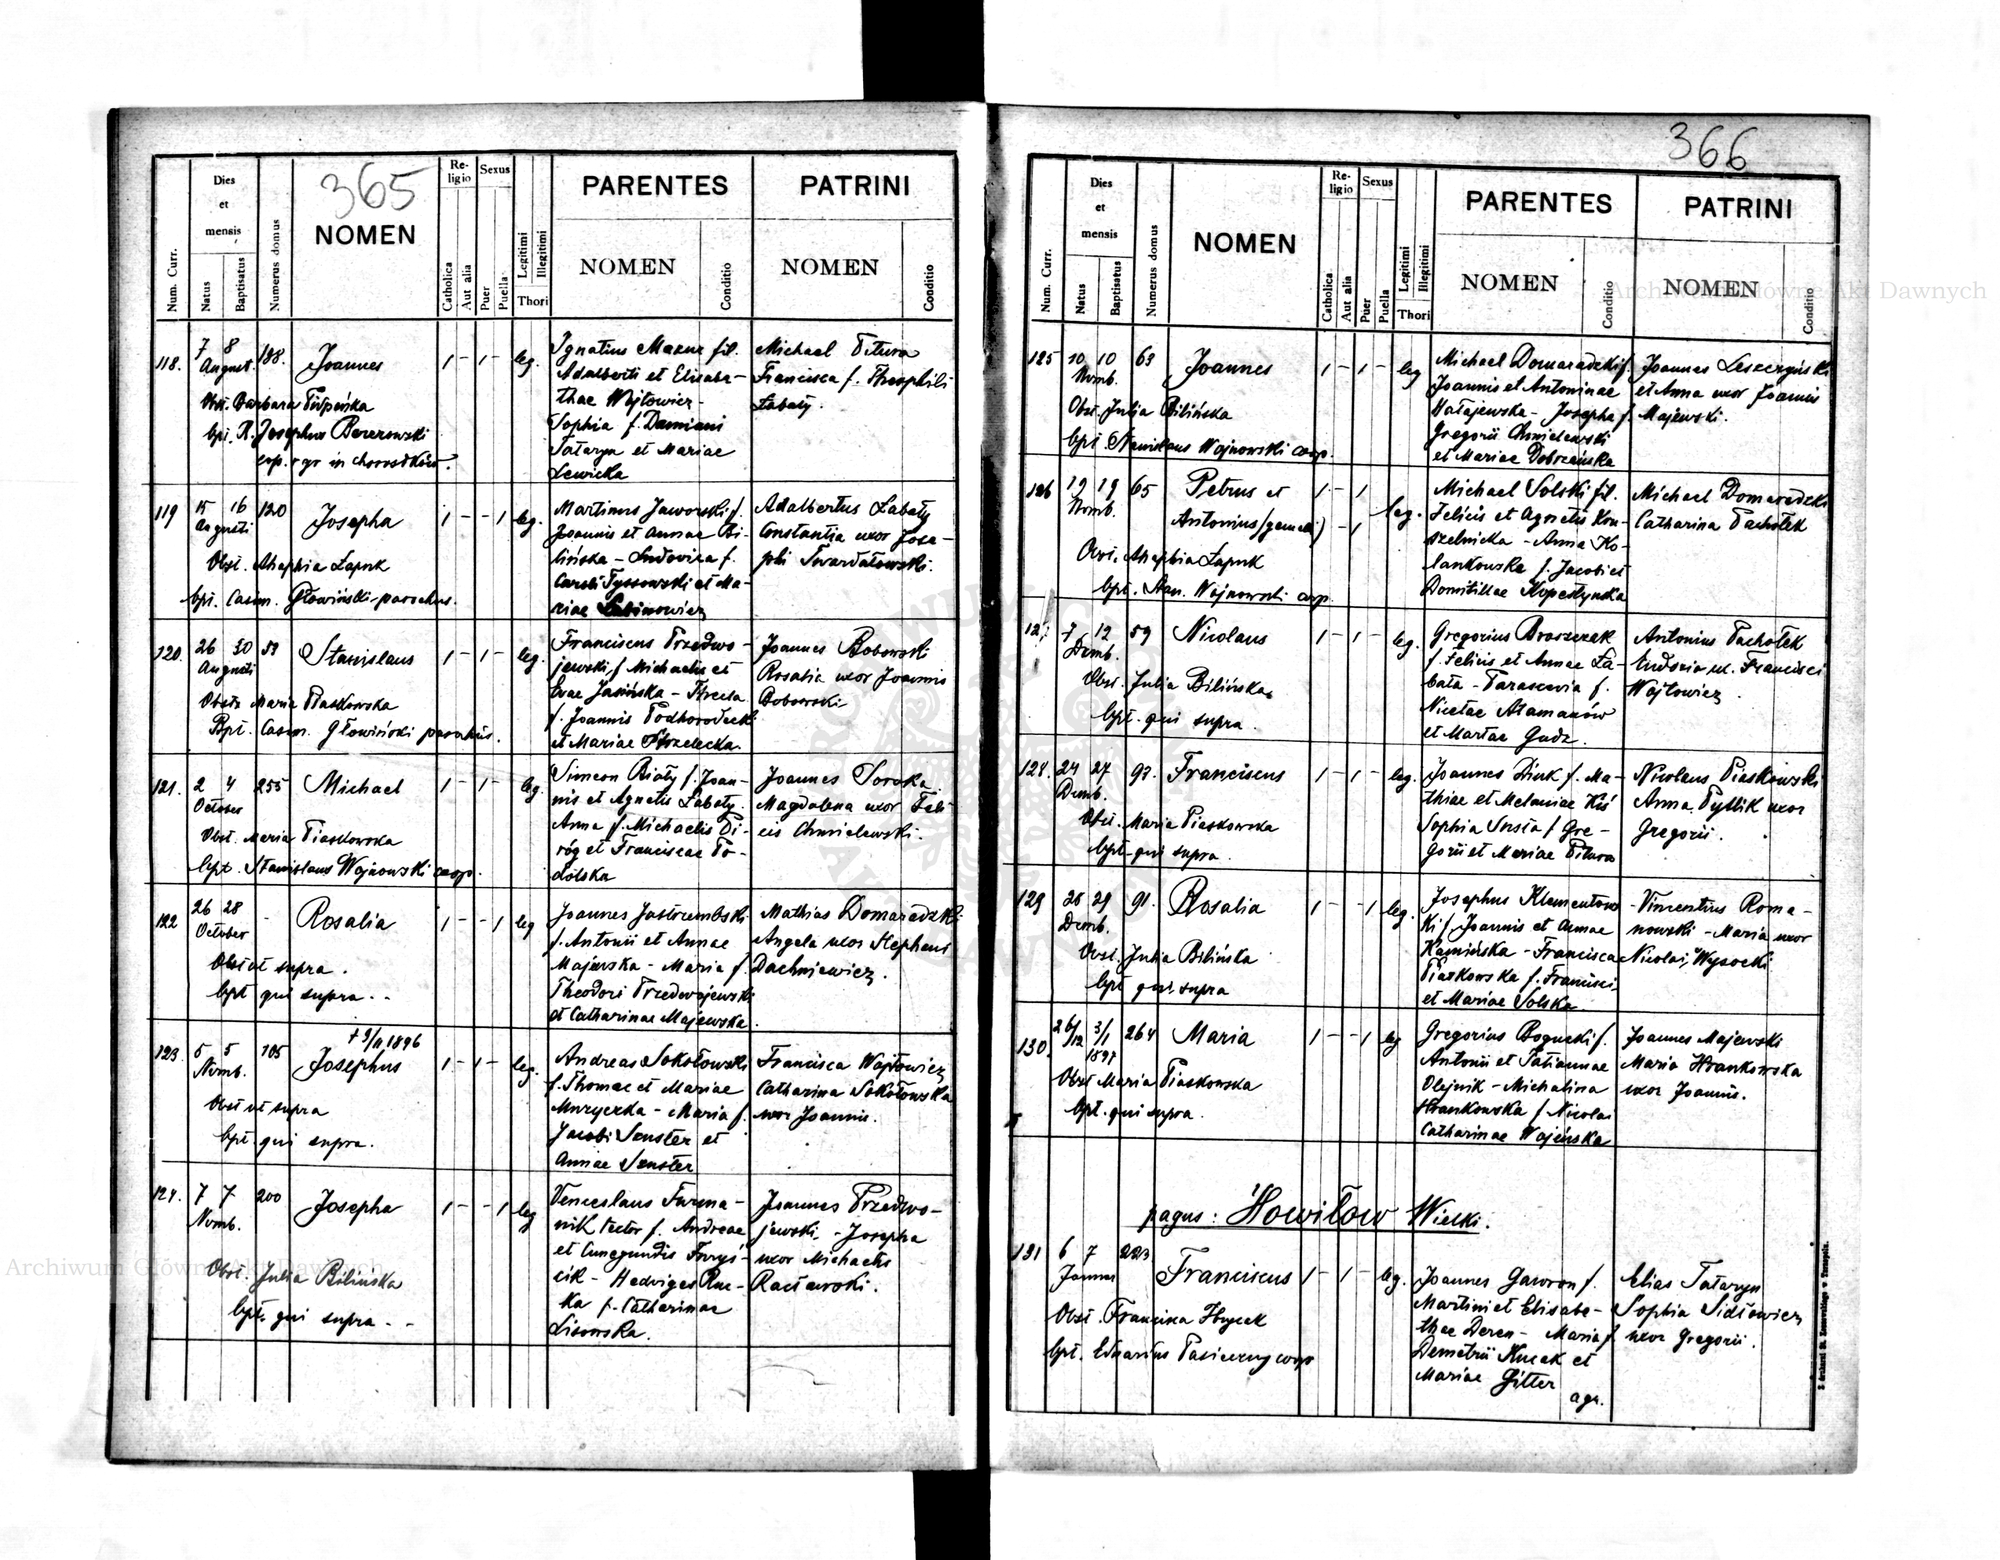 365
Num. Curr.
Dies et mensis
Natus
Baptisatus
Numerus domus
NOMEN
Religio
Catholica
Aut alia
Sexus
Puer
Puella
Legitimi
Illegitimi
Thori
PARENTES
NOMEN
Conditio
PATRINI
NOMEN
Conditio
118. 7 8 August. 188. Joannes 1 - 1 - leg.
Obst. Barbara
bpt. R. Josephus Berezowski
coop. r gr in chorostków.
Ignatius Mazur fil.
Adalberti et Elisabe-
thae Wojtowicz -
Sophia f. Damiani
Tataryn et Mariae
Lewicka
Michael Pitura
Francisca f. Theophili
Łabaty.
119 15 16 Augusti 120 Josepha 1 - - 1 leg.
Obst. Ahaphia Łapuk
bpt. Casim. Głowiński parochus.
Martinus Jaworski f.
Joannis et Annae Bi-
lińska - Ludovica f.
Caroli Tyssowski et Ma-
riae
Adalbertus Łabaty
Constantia uxor Jose-
phi Twardałowski.
120. 26 30 Augusti 59 Stanislaus 1 - 1 - leg.
Obst. Maria Piaskowska
Bpt. Casim. Głowiński parochus.
Franciscus Przedwo-
jewski f. Michaelis et
Evae Jasińska - Thecla
f. Joannis Podhorodecki
et Mariae Strzelecka.
Joannes Bobowski
Rosalia uxor Joannis
Bobowski
121. 2 4 October 255 Michael 1 - 1 - leg.
Obst. Maria Piaskowska
bpt. Stanislaus Wojnowski coop.
Simeon Biały f. Joan-
nis et Agnetis Łabaty.
Anna f. Michaelis Pi-
róg et Franciscae Po-
dolska
Joannes Soroka
Magdalena uxor Feli-
cis Chmielewski.
122 26 28 October - Rosalia 1 - - 1 leg
Obst ut supra.
bpt qui supra. -
Joannes Jastrzembski
f. Antonii et Annae
Majewska - Maria f.
Theodori Przedwojewski
et Catharinae Majewska.
Mathias Domaradzki
Angela uxor Stephani
Dachniewicz.
123. 5 5 Novmb. 105 Josephus + 9/11 1896 1 - 1 - leg.
Obst ut supra
bpt. qui supra.
Andreas Sokołowski
f. Thomae et Mariae
Muryczka - Maria f.
Jacobi Szuster et
Annae Szuster
Francisca Wojtowicz
Catharina Sokołowska
uxor Joannis.
124. 7 7 Novmb. 200 Josepha 1 - - 1 leg
Obst. Julia Bilińska
bpt. qui supra - -
Venceslaus Furma-
nik tector f. Andreae
et Cunegundis Furyś-
cik - Hedviges Ruc-
ka f. Catharinae
Lisowska.
Joannes Przedwo-
jewski. - Josepha
uxor Michaelis
Racławski.
366
Num. Curr.
Dies et mensis
Natus
Baptisatus
Numerus domus
NOMEN
Religio
Catholica
Aut alia
Sexus
Puer
Puella
Legitimi
Illegitimi
Thori
PARENTES
NOMEN
Conditio
PATRINI
NOMEN
Conditio
125 10 10 Novmb. 63 Joannes 1 - 1 - leg
Obst. Julia Bilińska
bpt. Stanislaus Wojnowski coop.
Michael Domaradzki f.
Joannis et Antoninae
Hałajewska - Josepha f.
Gregorii Chmielewski
et Mariae Dobrzańska
Joannes Leszczyński
et Anna uxor Joannis
Majewski.
126 19 19 Novmb. 65 Petrus et 1 - 1
Antonius (gemelli) - 1 leg.
Obst. Ahaphia Łapuk
bpt. Stan. Wojnowski coop.
Michael Solski fil.
Felicis et Agnetis Kon-
szelnicka - Anna Ko-
lankowska f. Jacobi et
Domitillae Kopestynska
Michael Domaradzki
Catharina Pachołek
127 7 12 Decmb. 59 Nicolaus 1 - 1 - leg.
Obst. Julia Bilińska
bpt. qui supra.
Gregorius Braszczak
f. Felicis et Annae Ła-
bata - Parascevia f.
Nicetae Atamanów
et Martae Gudz.
Antonius Pachołek
Eudocia ux. Francisci
Wojtowicz.
128. 24 27 Decmb. 97. Franciscus 1 - 1 - leg.
Obst. Maria Piaskowska
bpt. qui supra.
Joannes Link f. Ma-
thiae et Melaniae Kiś
Sophia Susła f Gre-
gorii et Mariae Pitura
Nicolaus Piaskowski
Anna Pytlik uxor
Gregorii.
129 28 29 Decmb. 91. Rosalia 1 - - 1 leg.
Obst. Julia Bilińska
bpt qui supra
Josephus Klementow
ki f. Joannis et Annae
Kamińska - Francisca
Piaskowska f. Francisci
et Mariae Solska.
- Vincentius Roma-
nowski - Maria uxor
Nicolai Wysocki
130. 26/12 3/1 1897 264 Maria 1 - - 1 leg
Obst Maria Piaskowska
bpt. qui supra.
Gregorius Bogucki f.
Antonii et Tatiannae
Olejnik - Michalina
Hrankowska f Nicolai
Catharinae Wojeńska
Joannes Majewski
Maria Hrankowska
uxor Joannis.
pagus: Howiłow Wielki.
131 6 7 Januar 223 Franciscus 1 - 1 - leg.
Obst. Francisca Hrycek
bpt. Eduardus Pasieczny coop
Joannes Gawron f.
Martini et Elisabe-
thae Deren - Maria f.
Demetrii Kucek et
Mariae Gitter
agr.
Elias Tataryn
Sophia Sidłowicz
uxor Gregorii.
Archiwum Główne Akt Dawnych
Archiwum Główne Akt Dawnych